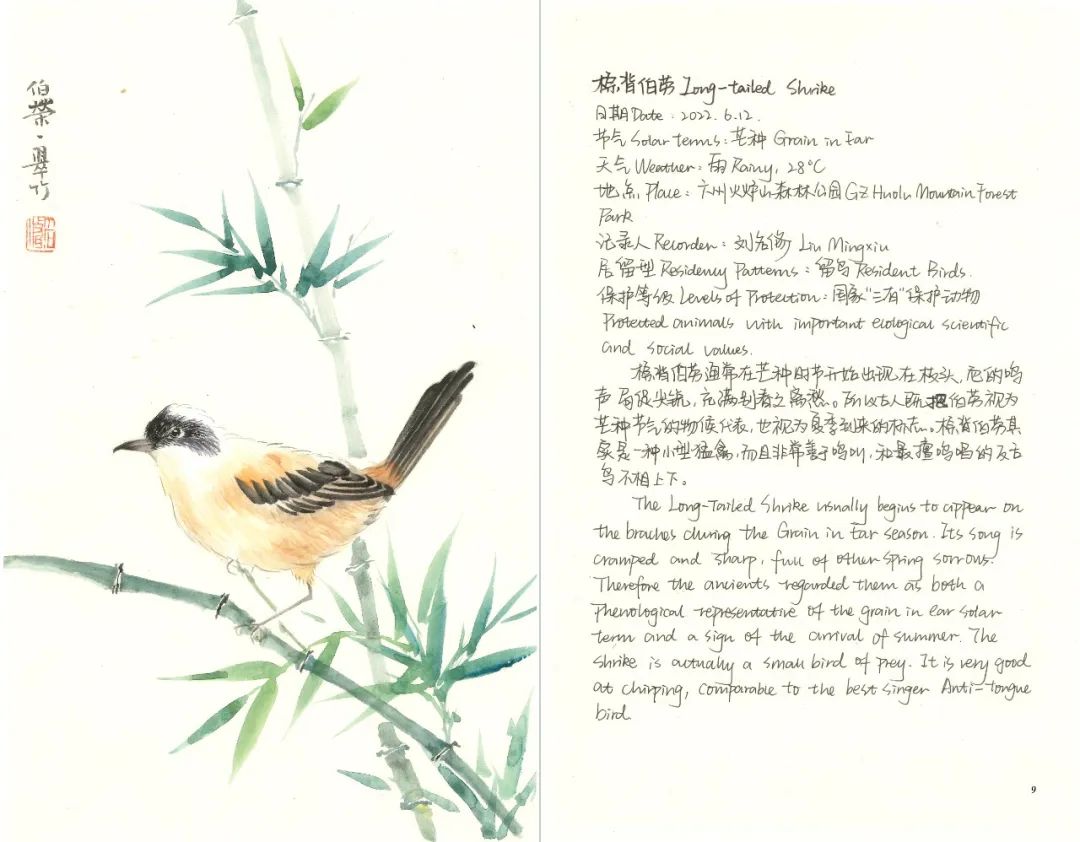 伯荣·翠竹
棕背伯劳 Long-tailed Shrike
日期Date：2022.6.12.
节气 Solar terms：芒种 Grain in Ear
天气 Weather：雨 Rainy, 28°C
地点 Place：广州火炉山森林公园 GZ Huolu Mountain Forest
Park
记录人 Recorder：刘名修 Liu Mingxiu
居留型 Residency Patterns：留鸟 Resident Birds.
保护等级 Levels of Protection：国家“三有”保护动物
Protected animals with important ecological scientific
and social values.
棕背伯劳通常在芒种时节开始出现在枝头，它的鸣
声局促尖锐，充满别春之离愁。所以古人既把伯劳视为
芒种节气的物候代表，也视为夏季到来的标志。棕背伯劳其
实是一种小型猛禽，而且非常善于鸣叫，和最擅鸣唱的反舌
鸟不相上下。
The Long-Tailed Shrike usually begins to appear on
the braches during the Grain in Ear season. Its song is
cramped and sharp, full of other spring sorrows.
Therefore the ancients regarded them as both a
Phenological representative of the grain in ear solar
term and a sign of the arrival of summer. The
shrike is actually a small bird of prey. It is very good
at chirping, comparable to the best singer Anti-tongue
bird.
9